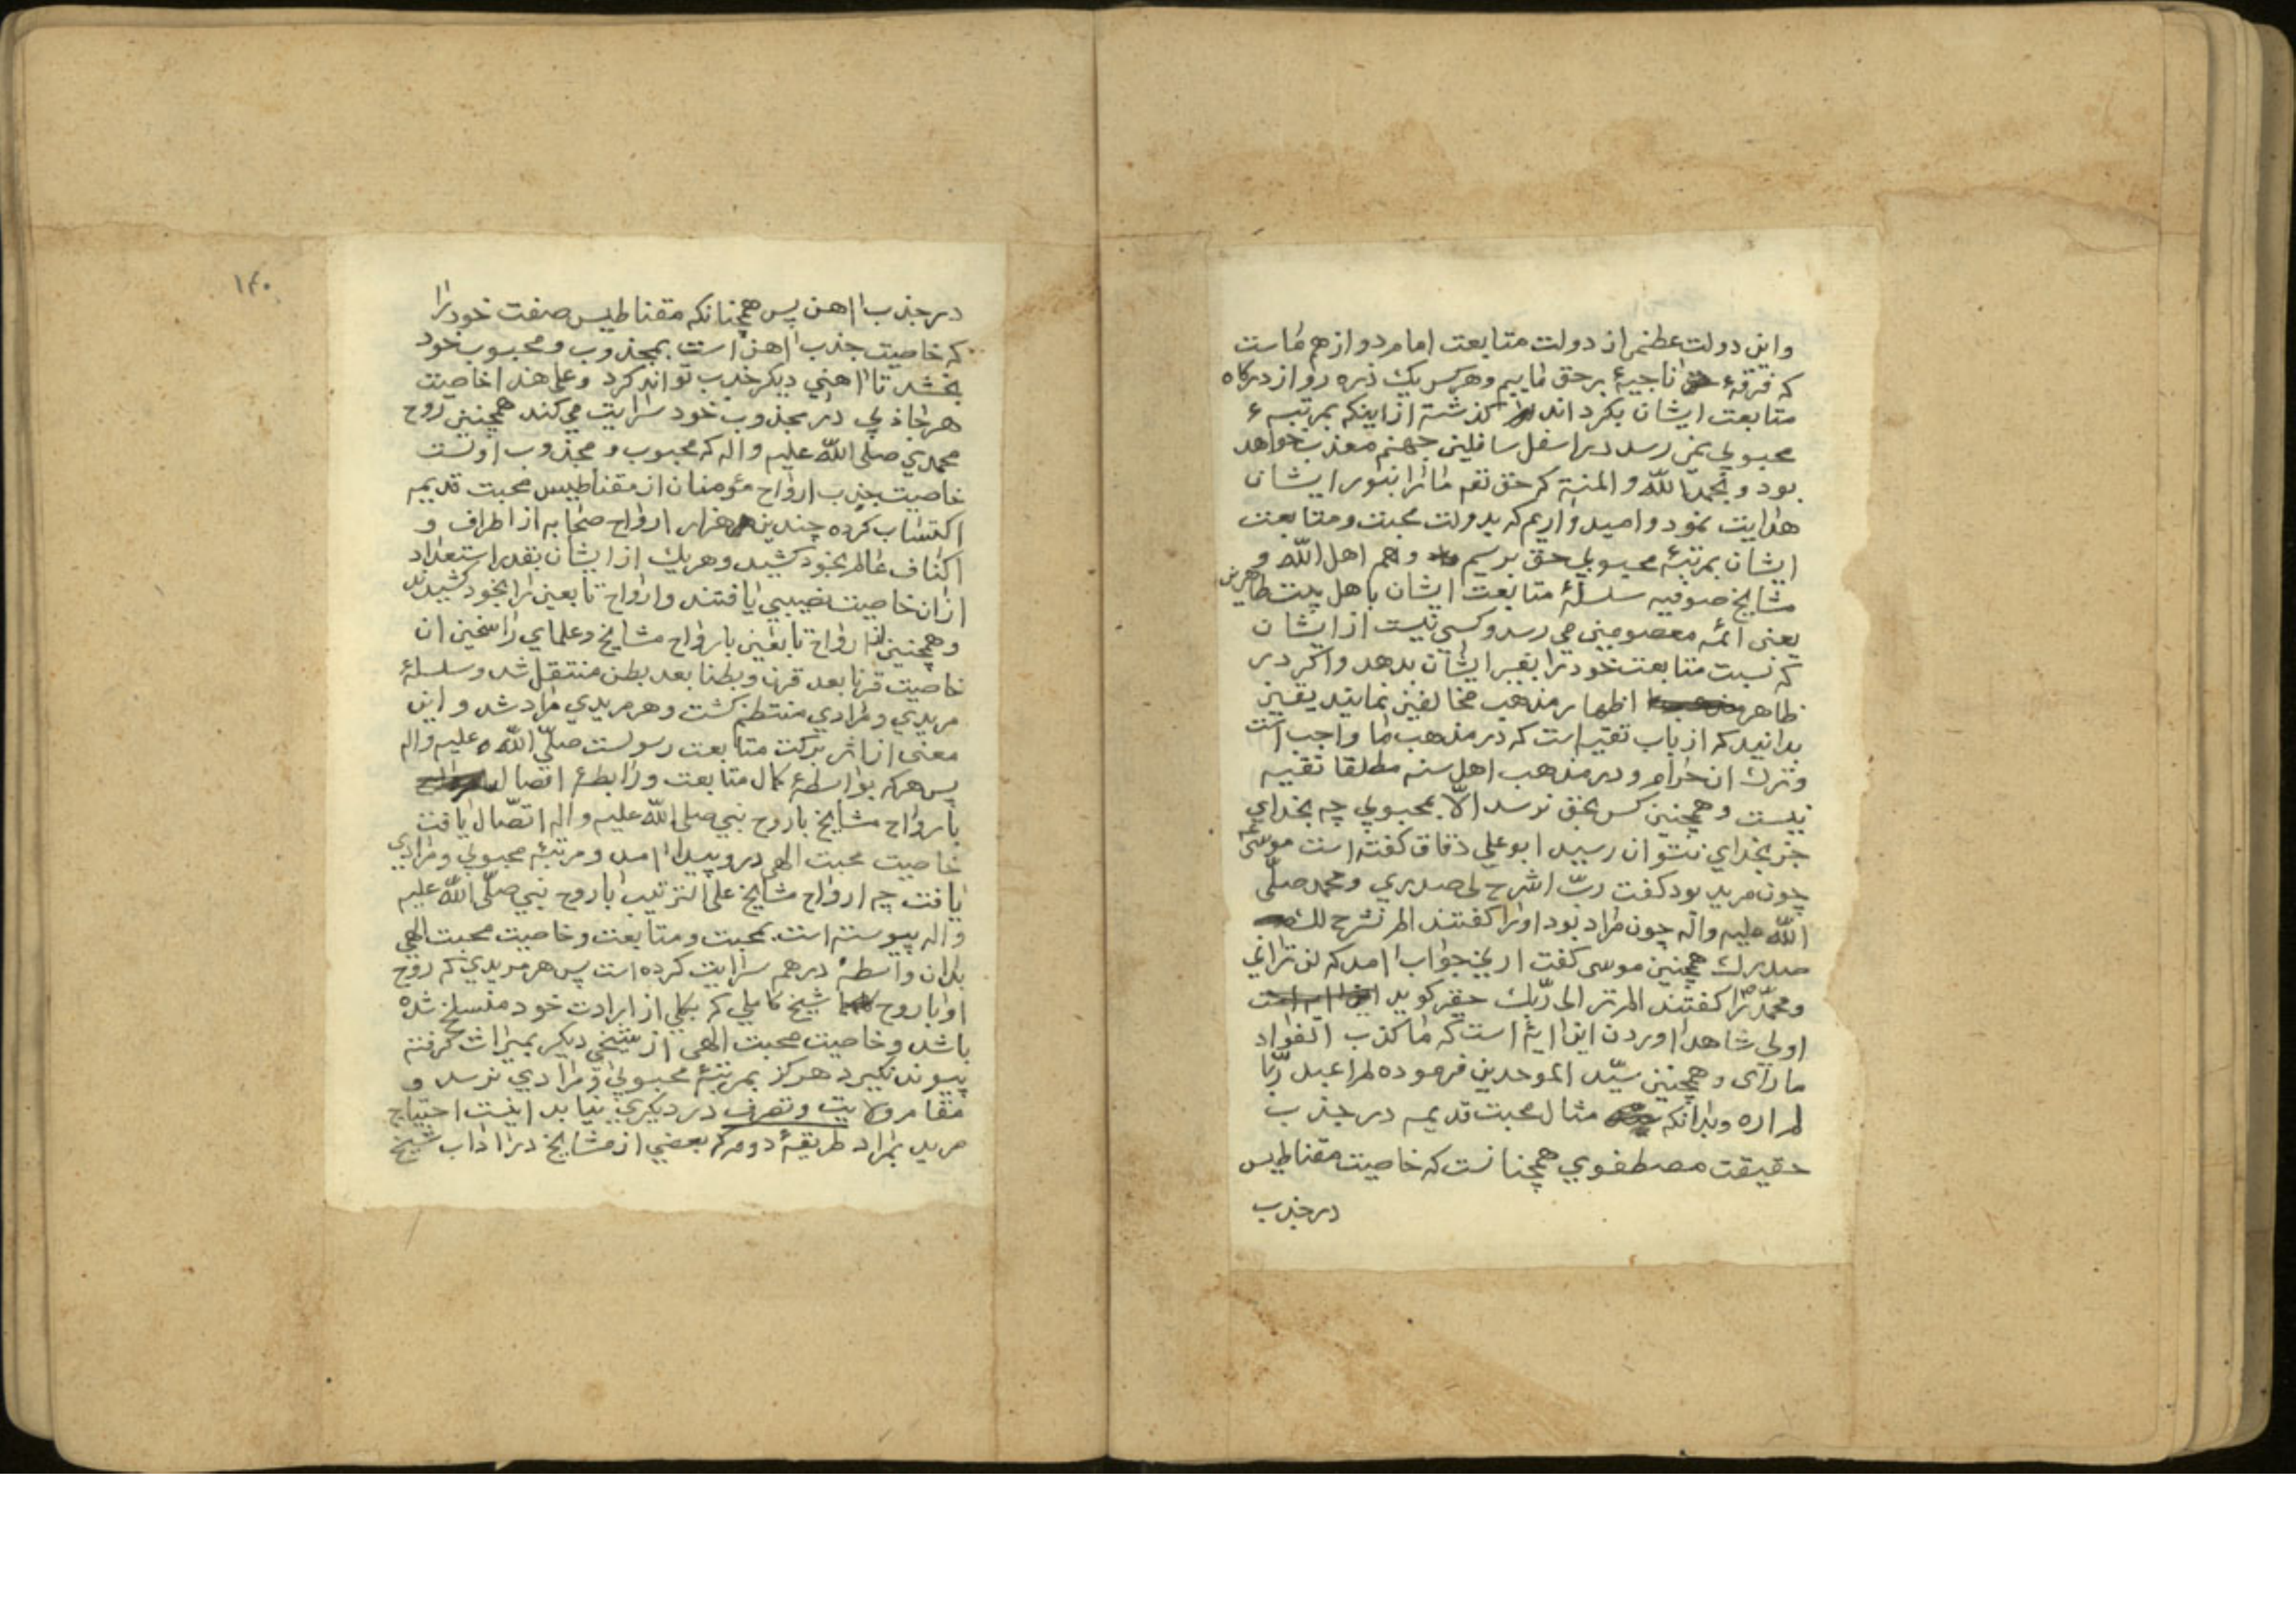 واین دولت عظمی از دولت متابعت امام دوازدهم ماست
که فرقهٔ ناجیهٔ برحق ماییم وهرکس یک ذره رو از درکاه
متابعت ایشان بکرداند کذشته از اینکه بمرتبهء
محبوبی نمی رسد در اسفل سافلین جهنم معذب خواهد
بود و بحمد اللّه و المنة که حق تعه ما را بنور ایشان
هدایت نمود و امید واریم که بدولت محبت و متابعت
ایشان بمرتبهٔ محبوبی حق برسیم و هم اهل اللّه و
مشایخ صوفیه سلسلهٔ متابعت ایشان باهل بیت طاهرین
یعنی ائمه معصومین می رسد و کسی نیست از ایشان
که نسبت متابعت خود را بغیر ایشان بدهد و اکر در
ظاهر اظهار مذهب مخالفین نمایند یقین
بدانید که از باب تقیه است که در مذهب ما واجب است
وترک ان حرام و در مذهب اهل سنه مطلقا تقیه
نیست و همچنین کس بحق نرسد الّا بمحبوبی چه بخدای
جز بخدای نتوان رسید ابو علی دقاق کفته است موسی
چون مرید بود کفت ربّ اشرح لی صدری و محمد صلّی
اللّه علیه واله چون مراد بود او را کفتند الم نشرح لک
صدرک همچنین موسی کفت ارنی جواب امد که لن ترانی
ومحمّد را کفتند الم تر الی ربّک حقیر کوید
اولی شاهد اوردن این ایه است که ما کذب الفواد
ما رای و همچنین سیّد الموحدین فرموده لم اعبد ربّا
لم اره وبدانکه مثال محبت قدیمه در جذب
حقیقت مصطفوی همچنانست که خاصیت مقناطیس
در جذب
۱۴۰
در جذب اهن پس همچنانکه مقناطیس صفت خود را
که خاصیت جذب اهن است بمجذوب و محبوب خود
بخشد تا اهنی دیکر جذب تواند کرد وعلی هذا خاصیت
هر جاذبی در مجذوب خود سرایت می کند همچنین روح
محمدی صلی اللّه علیه واله که محبوب و مجذوب اوست
خاصیت جذب ارواح مؤمنان از مقناطیس محبت قدیمه
اکتساب کرده چندین هزار ارواح صحابه از اطراف و
اکناف عالم بخود کشید وهر یک از ایشان بقدر استعداد
ازان خاصیت نصیبی یافتند و ارواح تابعین را بخود کشیدند
وهمچنین از ارواح تابعین بارواح مشایخ وعلمای راسخین ان
خاصیت قرنا بعد قرن و بطنا بعد بطن منتقل شد وسلسلهٔ
مریدی و مرادی منتظم کشت و هر مریدی مراد شد و این
معنی از اثر برکت متابعت رسولست صلّی اللّه علیه واله
پس هر که بواسطهٔ کمال متابعت و رابطهٔ اتصال
بارواح مشایخ با روح نبی صلی اللّه علیه واله اتصّال یافت
خاصیت محبت الهی در و پیدا امد و مرتبهٔ محبوبی و مرادی
یافت چه ارواح مشایخ علی الترتیب با روح نبی صلّی اللّه علیه
واله پیوسته است بمحبت و متابعت و خاصیت محبت الهی
بدان واسطه درهم سرایت کرده است پس هر مریدی که روح
او با روح شیخ کاملی که بکلی از ارادت خود منسلخ شده
باشد و خاصیت محبت الهی از شیخی دیکر بمیراث کرفته
پیوند نکیرد هرکز بمرتبهٔ محبوبی و مرادی نرسد و
مقام ولایت وتصرف در دیکری نیابد اینست احتیاج
مرید بمراد طریقهٔ دوم که بعضی از مشایخ در اداب شیخ